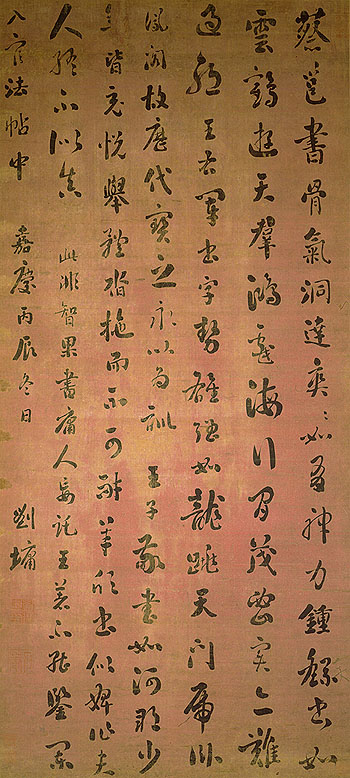 蔡邕書骨氣洞達爽〻如有神力鍾繇書如
雲鶴遊天羣鴻戲海行間茂密實亦難
過耶 王右軍書字勢雄強如龍跳天門虎臥
鳳閣故歷代寶之永以為訓 王子敬書如河朔少
年皆充悅舉體沓拖而不可耐羊欣書似婢作夫
人終不似真 此非智果書庸人妄託王著不能鑒闌
入官法帖中 嘉慶丙辰冬日 劉墉